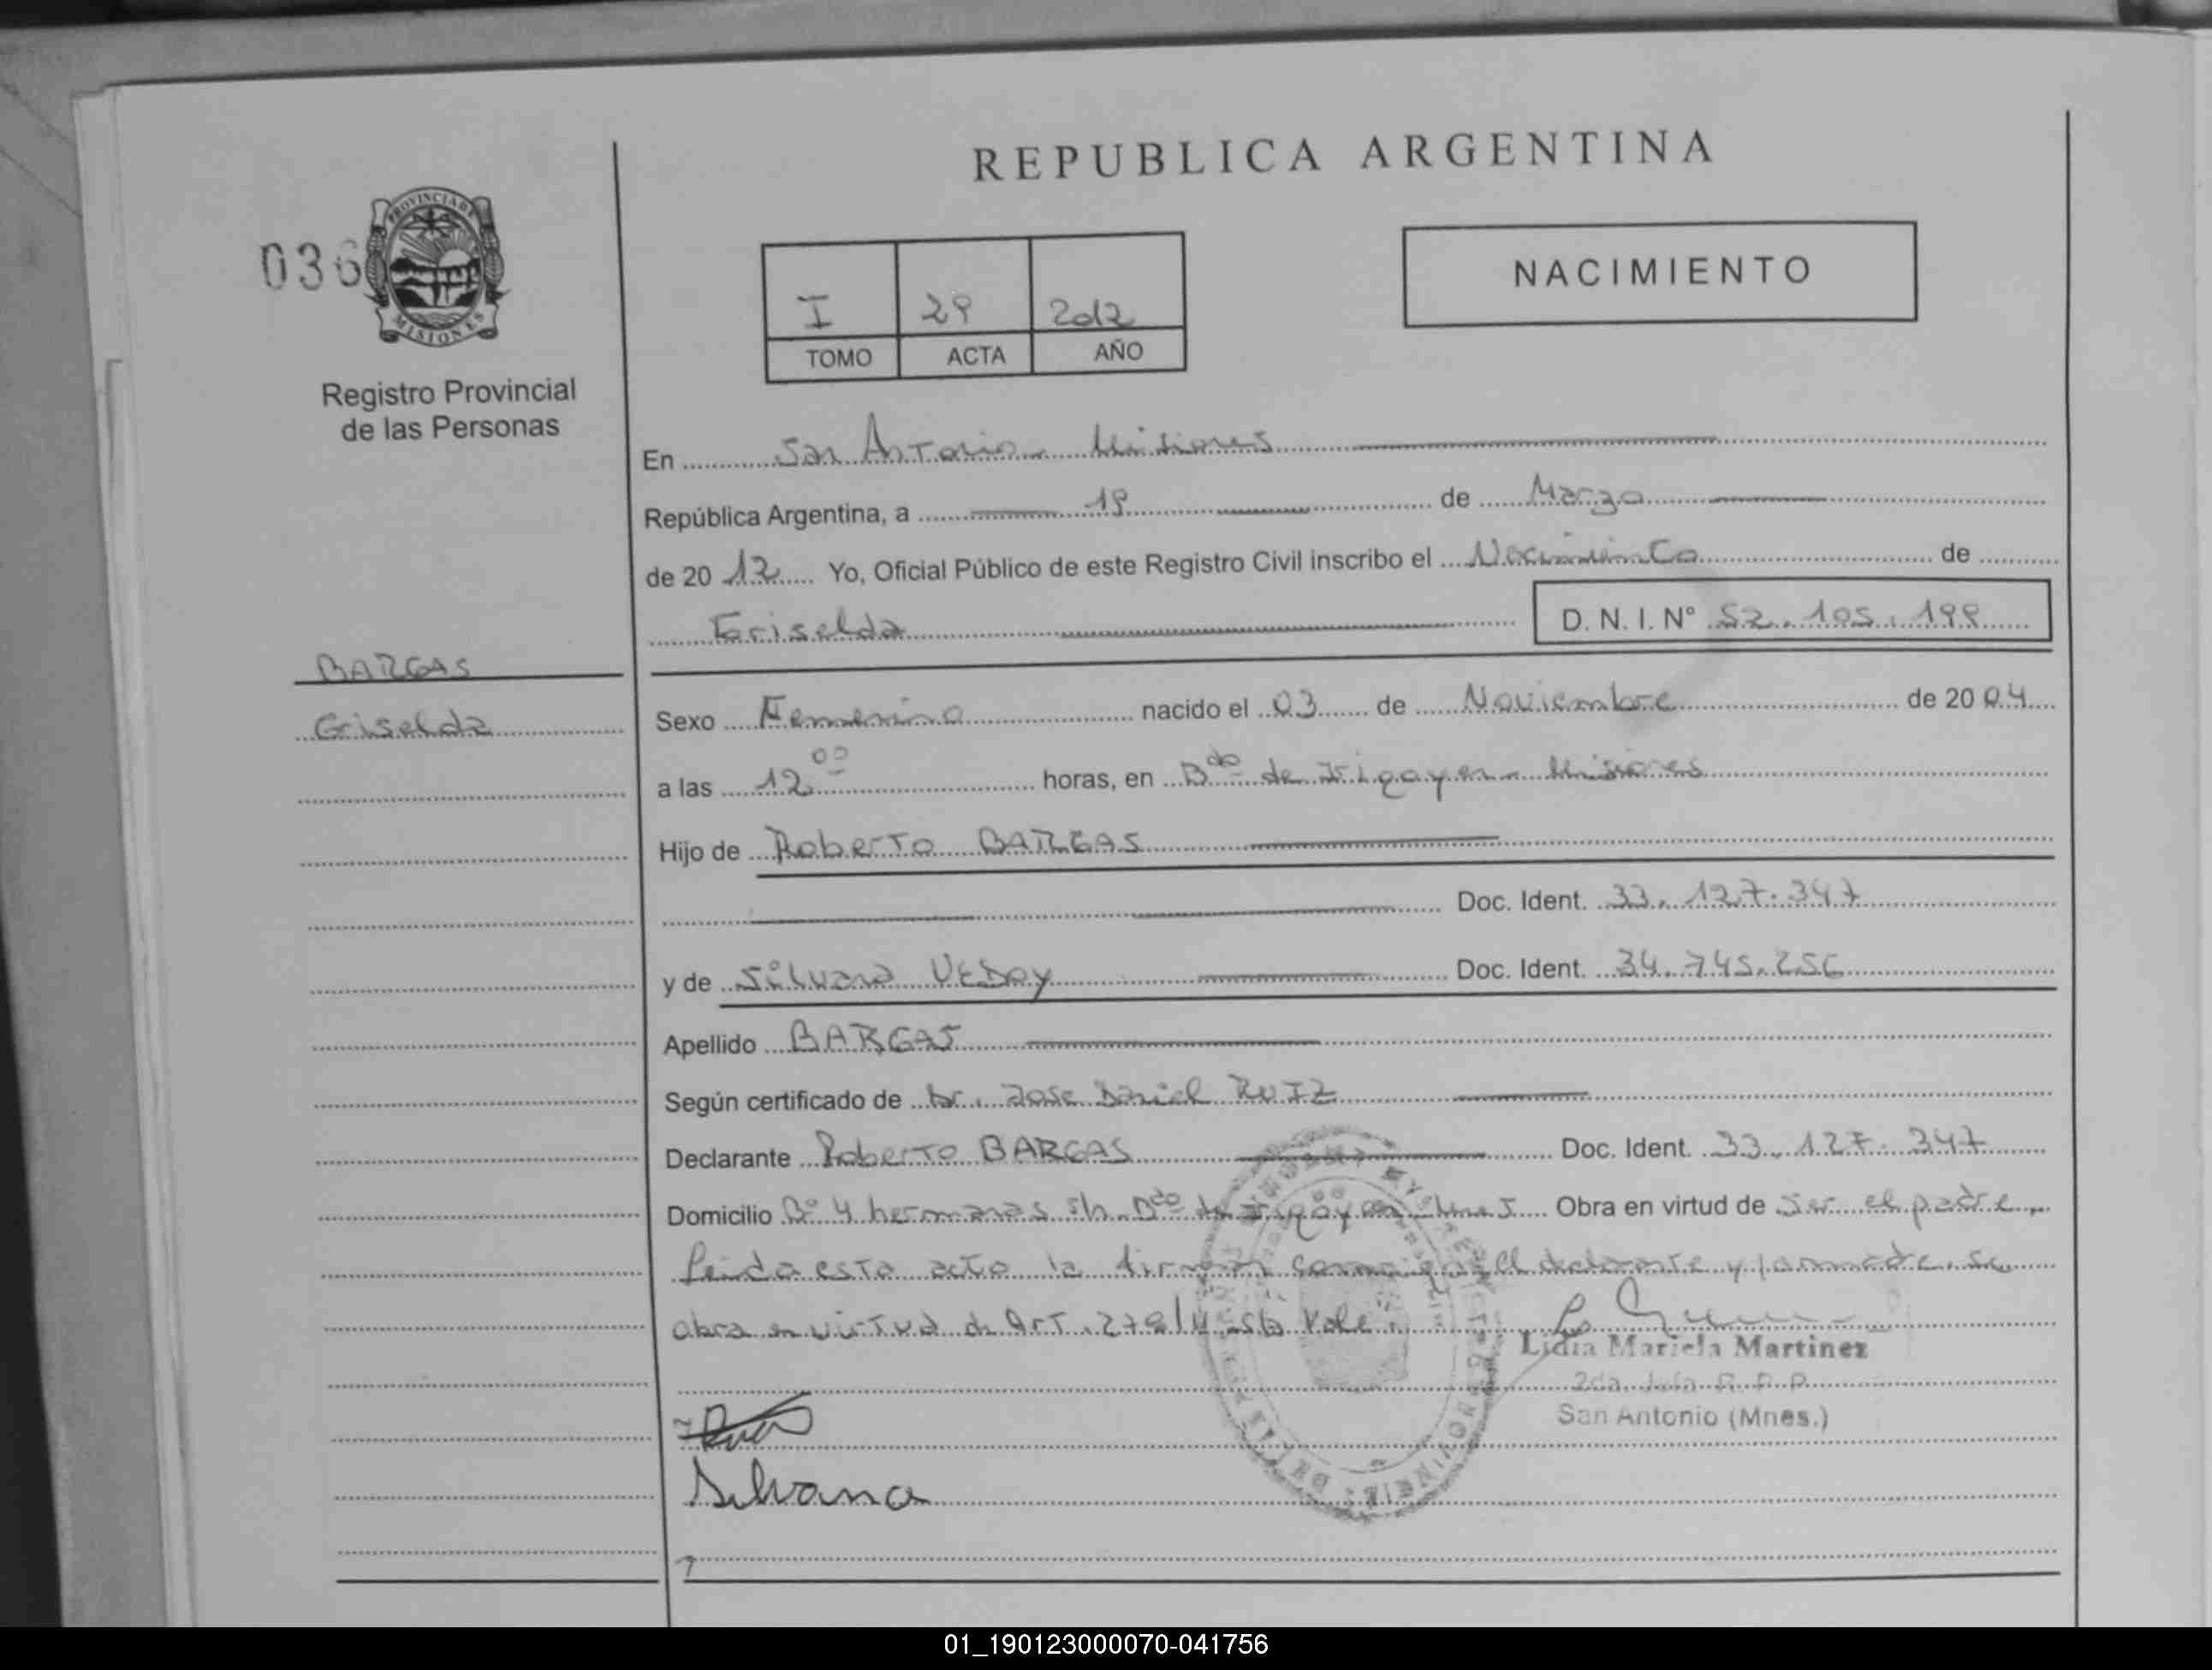 REPUBLICA ARGENTINA
036
PROVINCIA DE
MISIONES
NACIMIENTO
I 29 2012
TOMO ACTA AÑO
Registro Provincial
de las Personas
En San Antonio - Misiones
República Argentina, a 19 de Marzo
de 20 12 Yo, Oficial Público de este Registro Civil inscribo el Nacimiento de
Griselda D. N. I. Nº 52.105.199
BARGAS
Griselda
Sexo Femenino nacido el 03 de Noviembre de 20 04
a las 12 00 horas, en Bdo de Irigoyen - Misiones
Hijo de Roberto BARGAS
Doc. Ident. 33.127.347
y de Silvana VEDOY Doc. Ident. 34.745.256
Apellido BARGAS
Según certificado de Dr. Jose Daniel RUIZ
Declarante Roberto BARGAS Doc. Ident. 33.127.347
Domicilio Bº 4 hermanas s/n Bdo de Irigoyen Mnes Obra en virtud de ser el padre
Leida esta acta la firman conmigo el declarante y la madre. se
obra en virtud de Art. 278/4 Vale
Lidia Mariela Martinez
2da. Jefa R. P. P.
San Antonio (Mnes.)
Silvana
01_190123000070-041756